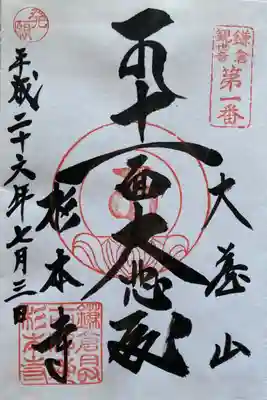 鎌倉
観世音
第一番
大蔵山
十一面大悲殿
杉本寺
発願
平成二十六年七月三日